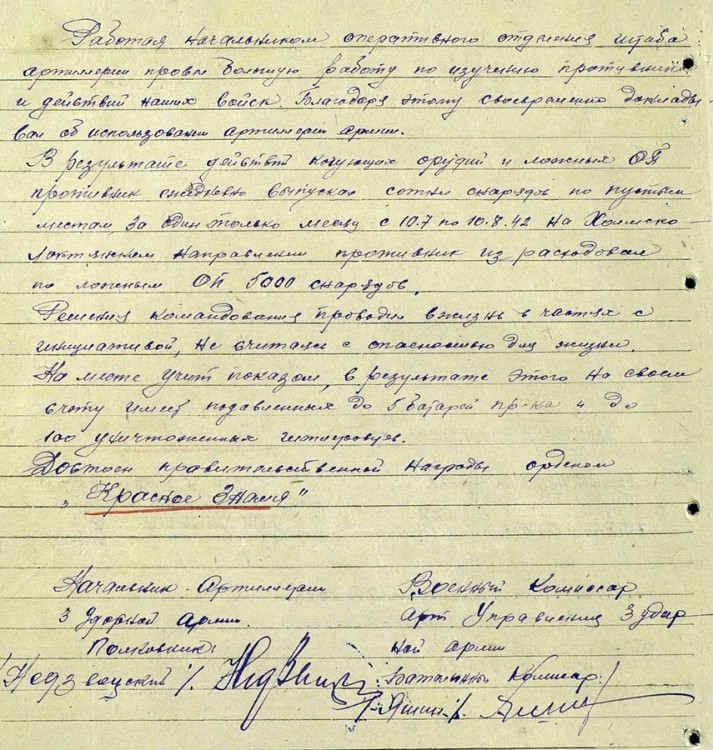 Работая начальником оперативного отделения штаба
артиллерии провел большую работу по изучению противника
и действий наших войск. Благодаря этому своевременно доклады-
вал об использовании артиллерии армии.
В результате действий кочующих орудий и ложных ОП
противник ежедневно выпускал сотни снарядов по пустым
местам. За один только месяц с 10.7 по 10.8.42 на Холмско-
Локтянском направлении противник израсходовал
по ложным ОП 5000 снарядов.
Решения командования проводил в жизнь в частях с
инициативой, не считаясь с опасностью для жизни.
На месте учит показом, в результате этого на своем
счету имеет подавленных до 5 батарей пр-ка и до
100 уничтоженных гитлеровцев.
Достоен правительственной награды орденом
"Красное Знамя"
Начальник Артиллерии
3 Ударной Армии
Полковник
Военный Комиссар
Арт Управления 3 удар-
ной армии
Батальонный Комисар